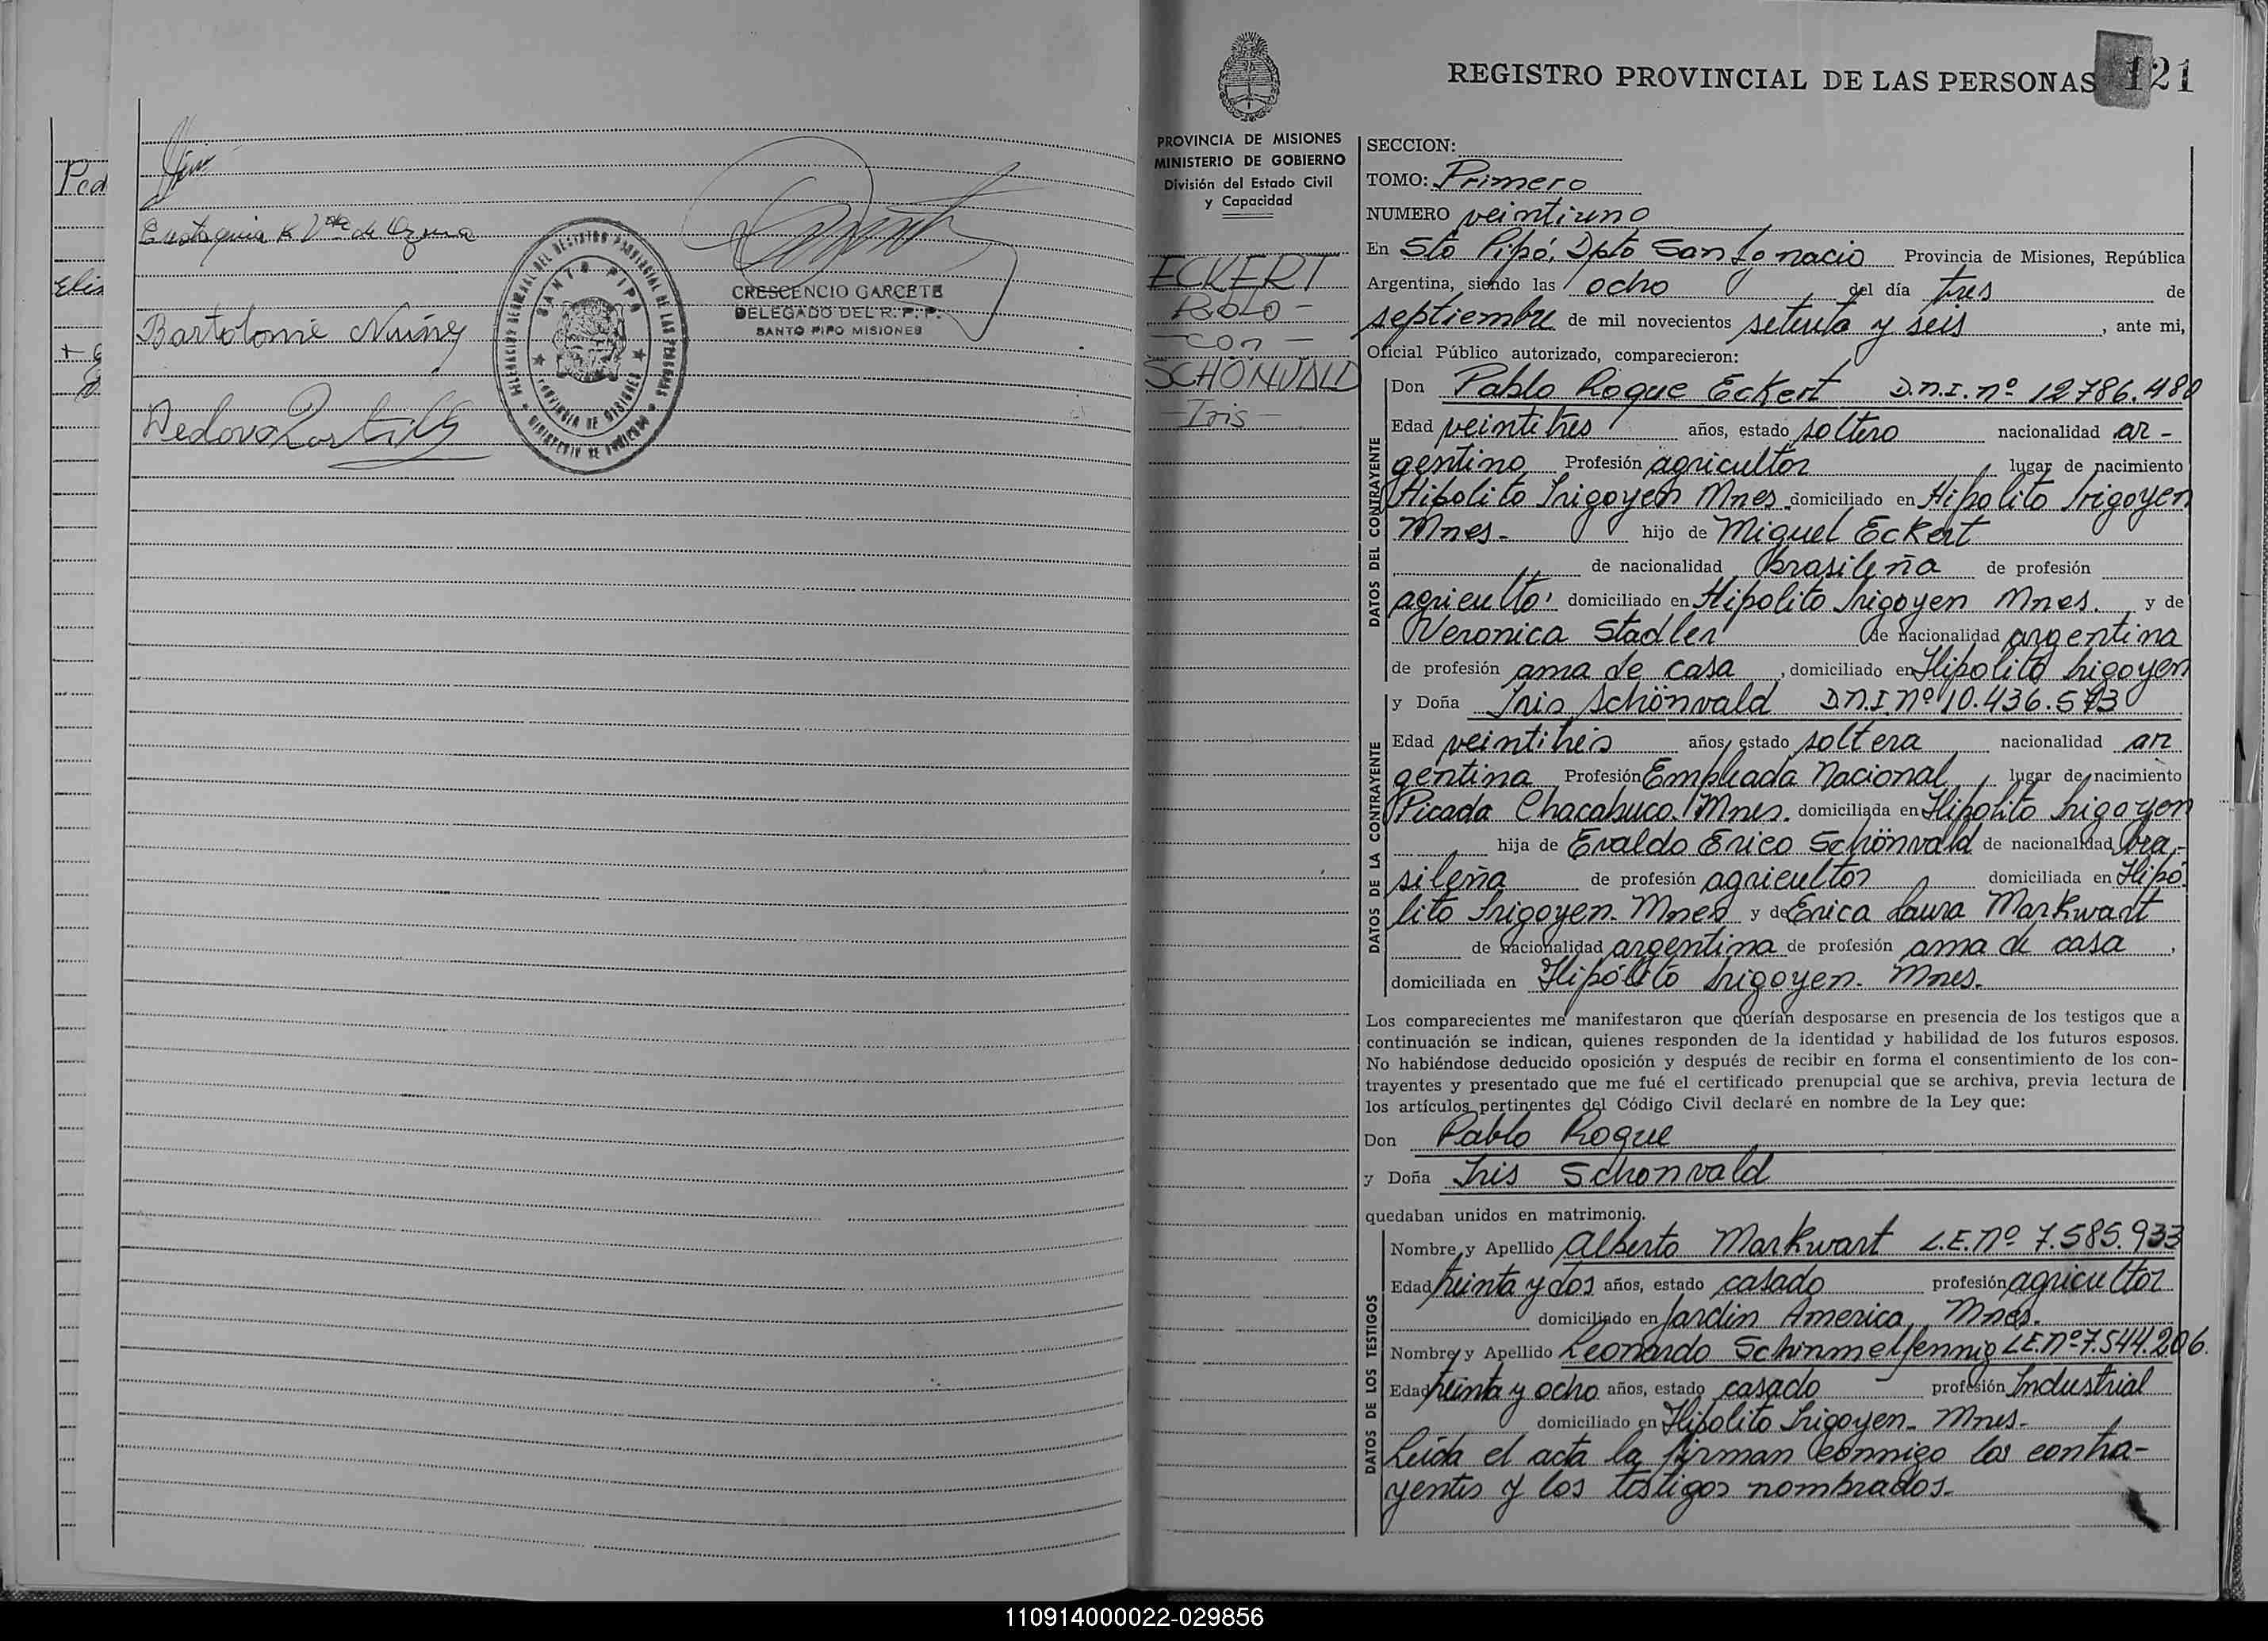 Ped
Elis
Eustaquia K Vda de Ozuna
Bartolomé Nuñez
CRESCENCIO GARCETE
DELEGADO DEL R. P. P.
SANTO PIPO MISIONES
SANTO PIPO
PROVINCIA DE MISIONES
REGISTRO PROVINCIAL DE LAS PERSONAS
121
PROVINCIA DE MISIONES
MINISTERIO DE GOBIERNO
División del Estado Civil
y Capacidad
ECKERT
Pablo -
- con -
SCHÖNVALD
- Iris -
SECCION:
TOMO: Primero
NUMERO veintiuno
En Sto Pipó, Dpto San Ignacio Provincia de Misiones, República
Argentina, siendo las ocho del día tres de
septiembre de mil novecientos setenta y seis, ante mi,
Oficial Público autorizado, comparecieron:
DATOS DEL CONTRAYENTE
Don Pablo Roque Eckert D.N.I. nº 12.786.480
Edad veintitres años, estado soltero nacionalidad ar-
gentino Profesión agricultor lugar de nacimiento
Hipolito Irigoyen Mnes. domiciliado en Hipolito Irigoyen
Mnes- hijo de Miguel Eckert
de nacionalidad brasileña de profesión
agricultor domiciliado en Hipolito Irigoyen Mnes. y de
Veronica Stadler de nacionalidad argentina
de profesión ama de casa, domiciliado en Hipolito Irigoyen
DATOS DE LA CONTRAYENTE
y Doña Iris Schönvald D.N.I. nº 10.436.573
Edad veintitrés años, estado soltera nacionalidad ar
gentina Profesión Empleada Nacional lugar de nacimiento
Picada Chacabuco. Mnes. domiciliada en Hipolito Irigoyen
hija de Evaldo Erico Schönvald de nacionalidad bra-
sileña de profesión agricultor domiciliada en Hipó-
lito Irigoyen. Mnes y de Erica Laura Markwart
de nacionalidad argentina de profesión ama de casa,
domiciliada en Hipólito Irigoyen. Mnes.
Los comparecientes me manifestaron que querían desposarse en presencia de los testigos que a
continuación se indican, quienes responden de la identidad y habilidad de los futuros esposos.
No habiéndose deducido oposición y después de recibir en forma el consentimiento de los con-
trayentes y presentado que me fué el certificado prenupcial que se archiva, previa lectura de
los artículos pertinentes del Código Civil declaré en nombre de la Ley que:
Don Pablo Roque
y Doña Iris Schonvald
quedaban unidos en matrimonio.
DATOS DE LOS TESTIGOS
Nombre y Apellido Alberto Markwart L.E. Nº 7.585.933
Edad treinta y dos años, estado casado profesión agricultor
domiciliado en Jardin America, Mnes.
Nombre y Apellido Leonardo Schinmelfennig L.E. Nº 7.544.206.
Edad treinta y ocho años, estado casado profesión Industrial
domiciliado en Hipolito Irigoyen- Mnes-
Leida el acta la firman conmigo los contra-
yentes y los testigos nombrados.
110914000022-029856